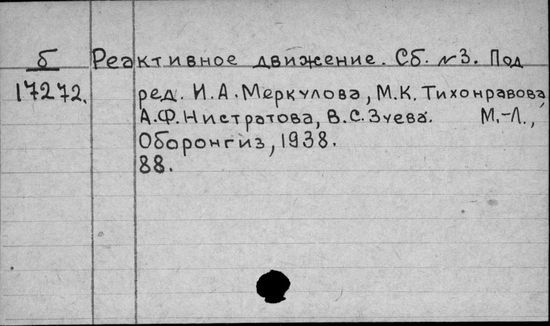 б Реактивное движение. Сб. №3. Под
17272. ред. И.А. Меркулова, М.К. Тихонравова,
А.Ф. Нистратова, В.С. Зуева. М.-Л.,
Оборонгиз, 1938.
88.